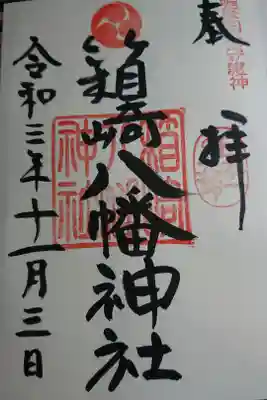 奉拝
箱崎八幡神社
令和三年十一月三日
箱崎
八幡
神社